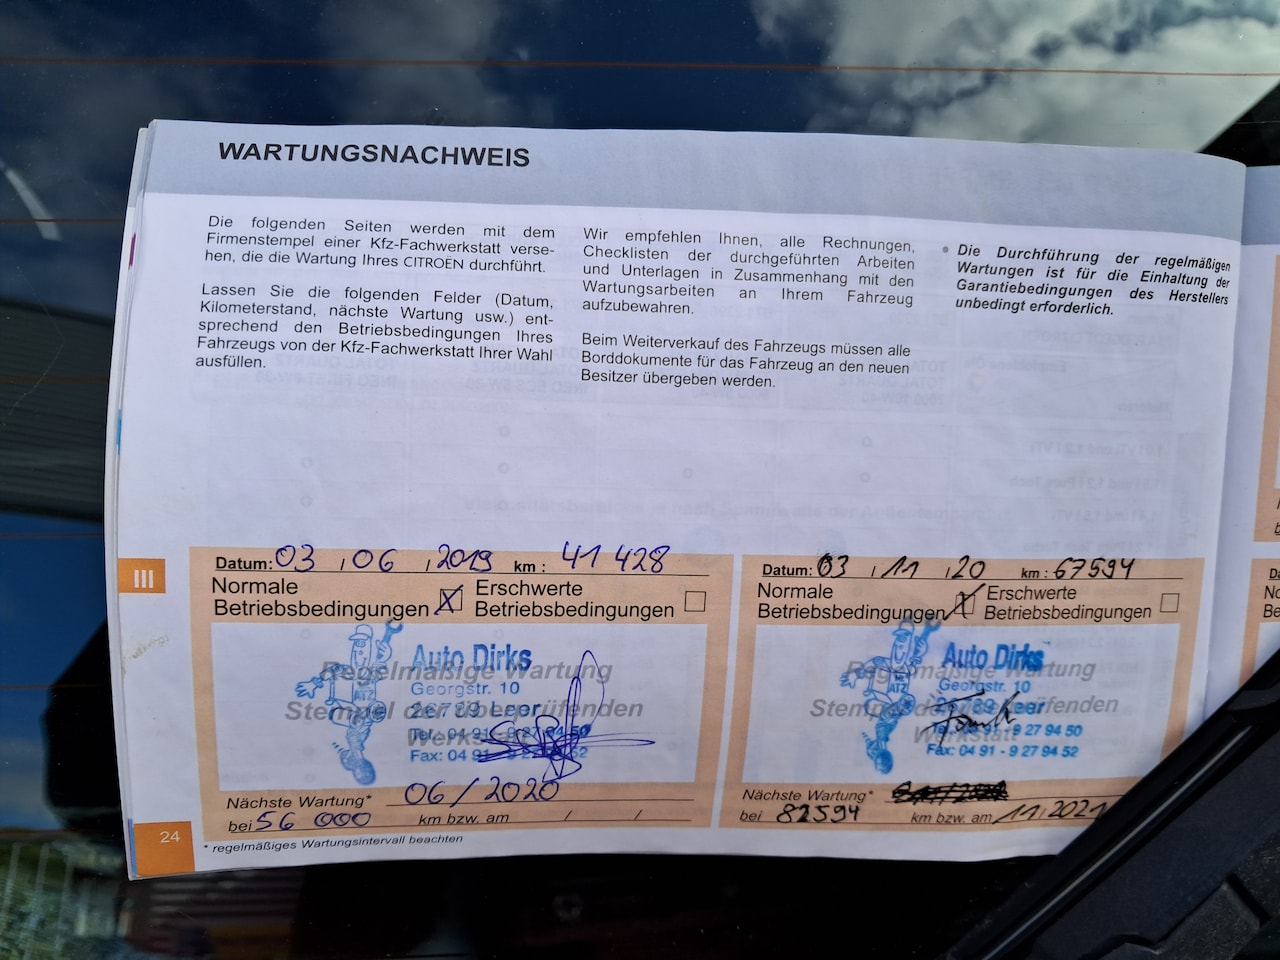 WARTUNGSNACHWEIS
Die folgenden Seiten werden mit dem
Firmenstempel einer Kfz-Fachwerkstatt verse-
hen, die die Wartung Ihres CITROËN durchführt.
Lassen Sie die folgenden Felder (Datum,
Kilometerstand, nächste Wartung usw.) ent-
sprechend den Betriebsbedingungen Ihres
Fahrzeugs von der Kfz-Fachwerkstatt Ihrer Wahl
ausfüllen.
Wir empfehlen Ihnen, alle Rechnungen,
Checklisten der durchgeführten Arbeiten
und Unterlagen in Zusammenhang mit den
Wartungsarbeiten an Ihrem Fahrzeug
aufzubewahren.
Beim Weiterverkauf des Fahrzeugs müssen alle
Borddokumente für das Fahrzeug an den neuen
Besitzer übergeben werden.
Die Durchführung der regelmäßigen
Wartungen ist für die Einhaltung der
Garantiebedingungen des Herstellers
unbedingt erforderlich.
III
Datum: 03 / 06 / 2019 km : 41 428
Normale
Betriebsbedingungen
Erschwerte
Betriebsbedingungen
Auto Dirks
Regelmäßige Wartung
Georgstr. 10
Stempel der überprüfenden
26789 Leer
Werkstatt
Tel.: 04 91 - 9 27 94 50
Fax: 04 91 - 9 27 94 52
ATZ
Nächste Wartung* 06/2020
bei 56 000 km bzw. am / /
Datum: 03 / 11 / 20 km : 67594
Normale
Betriebsbedingungen
Erschwerte
Betriebsbedingungen
Auto Dirks
Regelmäßige Wartung
Georgstr. 10
Stempel der überprüfenden
26789 Leer
Werkstatt
Tel.: 04 91 - 9 27 94 50
Fax: 04 91 - 9 27 94 52
ATZ
Nächste Wartung*
bei 82594 km bzw. am 11/2021
24
* regelmäßiges Wartungsintervall beachten